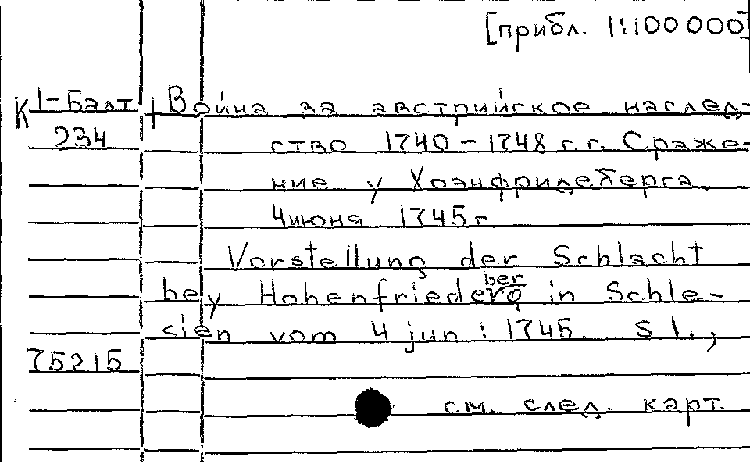 [прибл. 1:100 000]
К 1-Балт
234
Война за австрийское наслед-
ство 1740-1748 г.г. Сраже-
ние у Хоэнфридеберга.
4 июня 1745 г
Vorstellung der Schlacht
bey Hohenfriederg ber in Schle-
sien vom 4 jun: 1745 S. l.,
75215
см. след. карт.